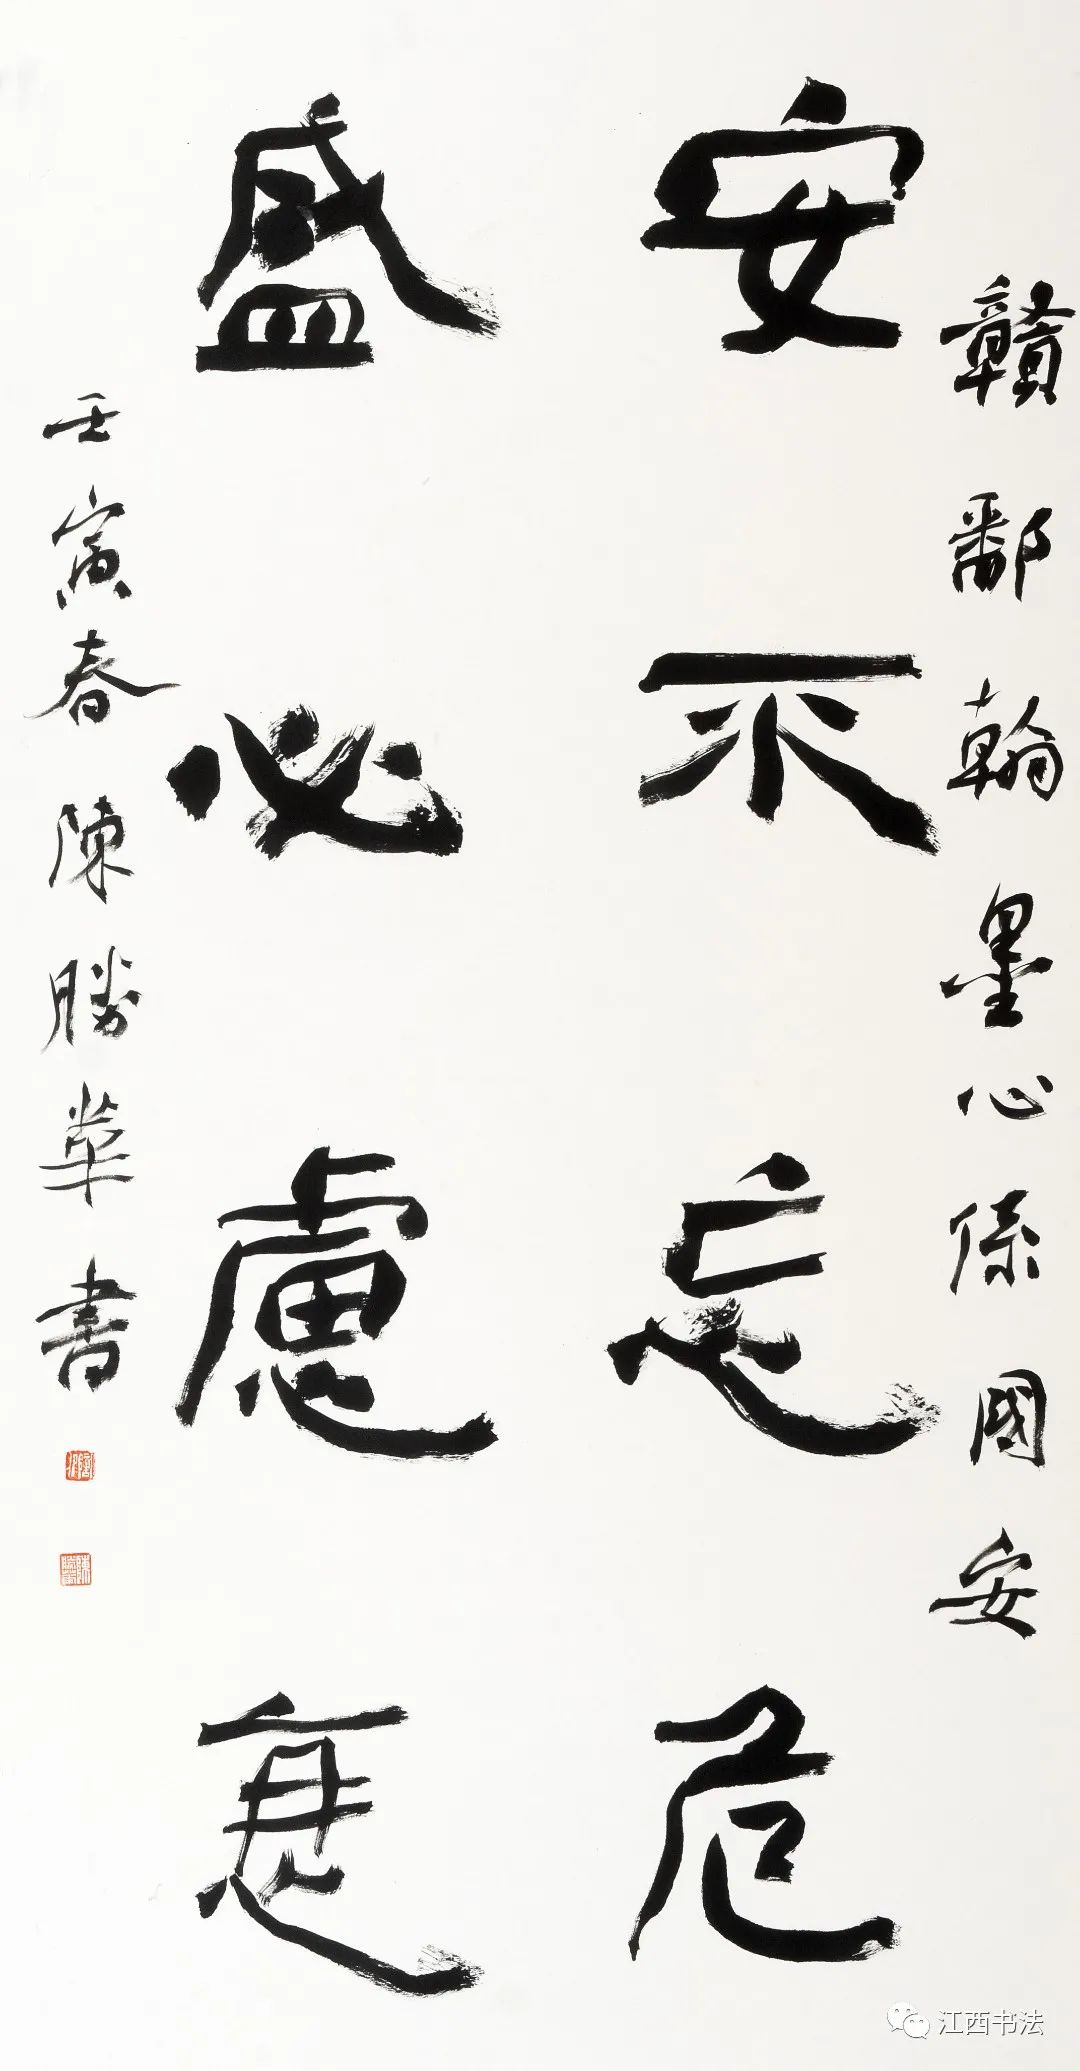 贛鄱翰墨心係國安
安不忘危
盛必慮衰
壬寅春陳勝華書
江西书法